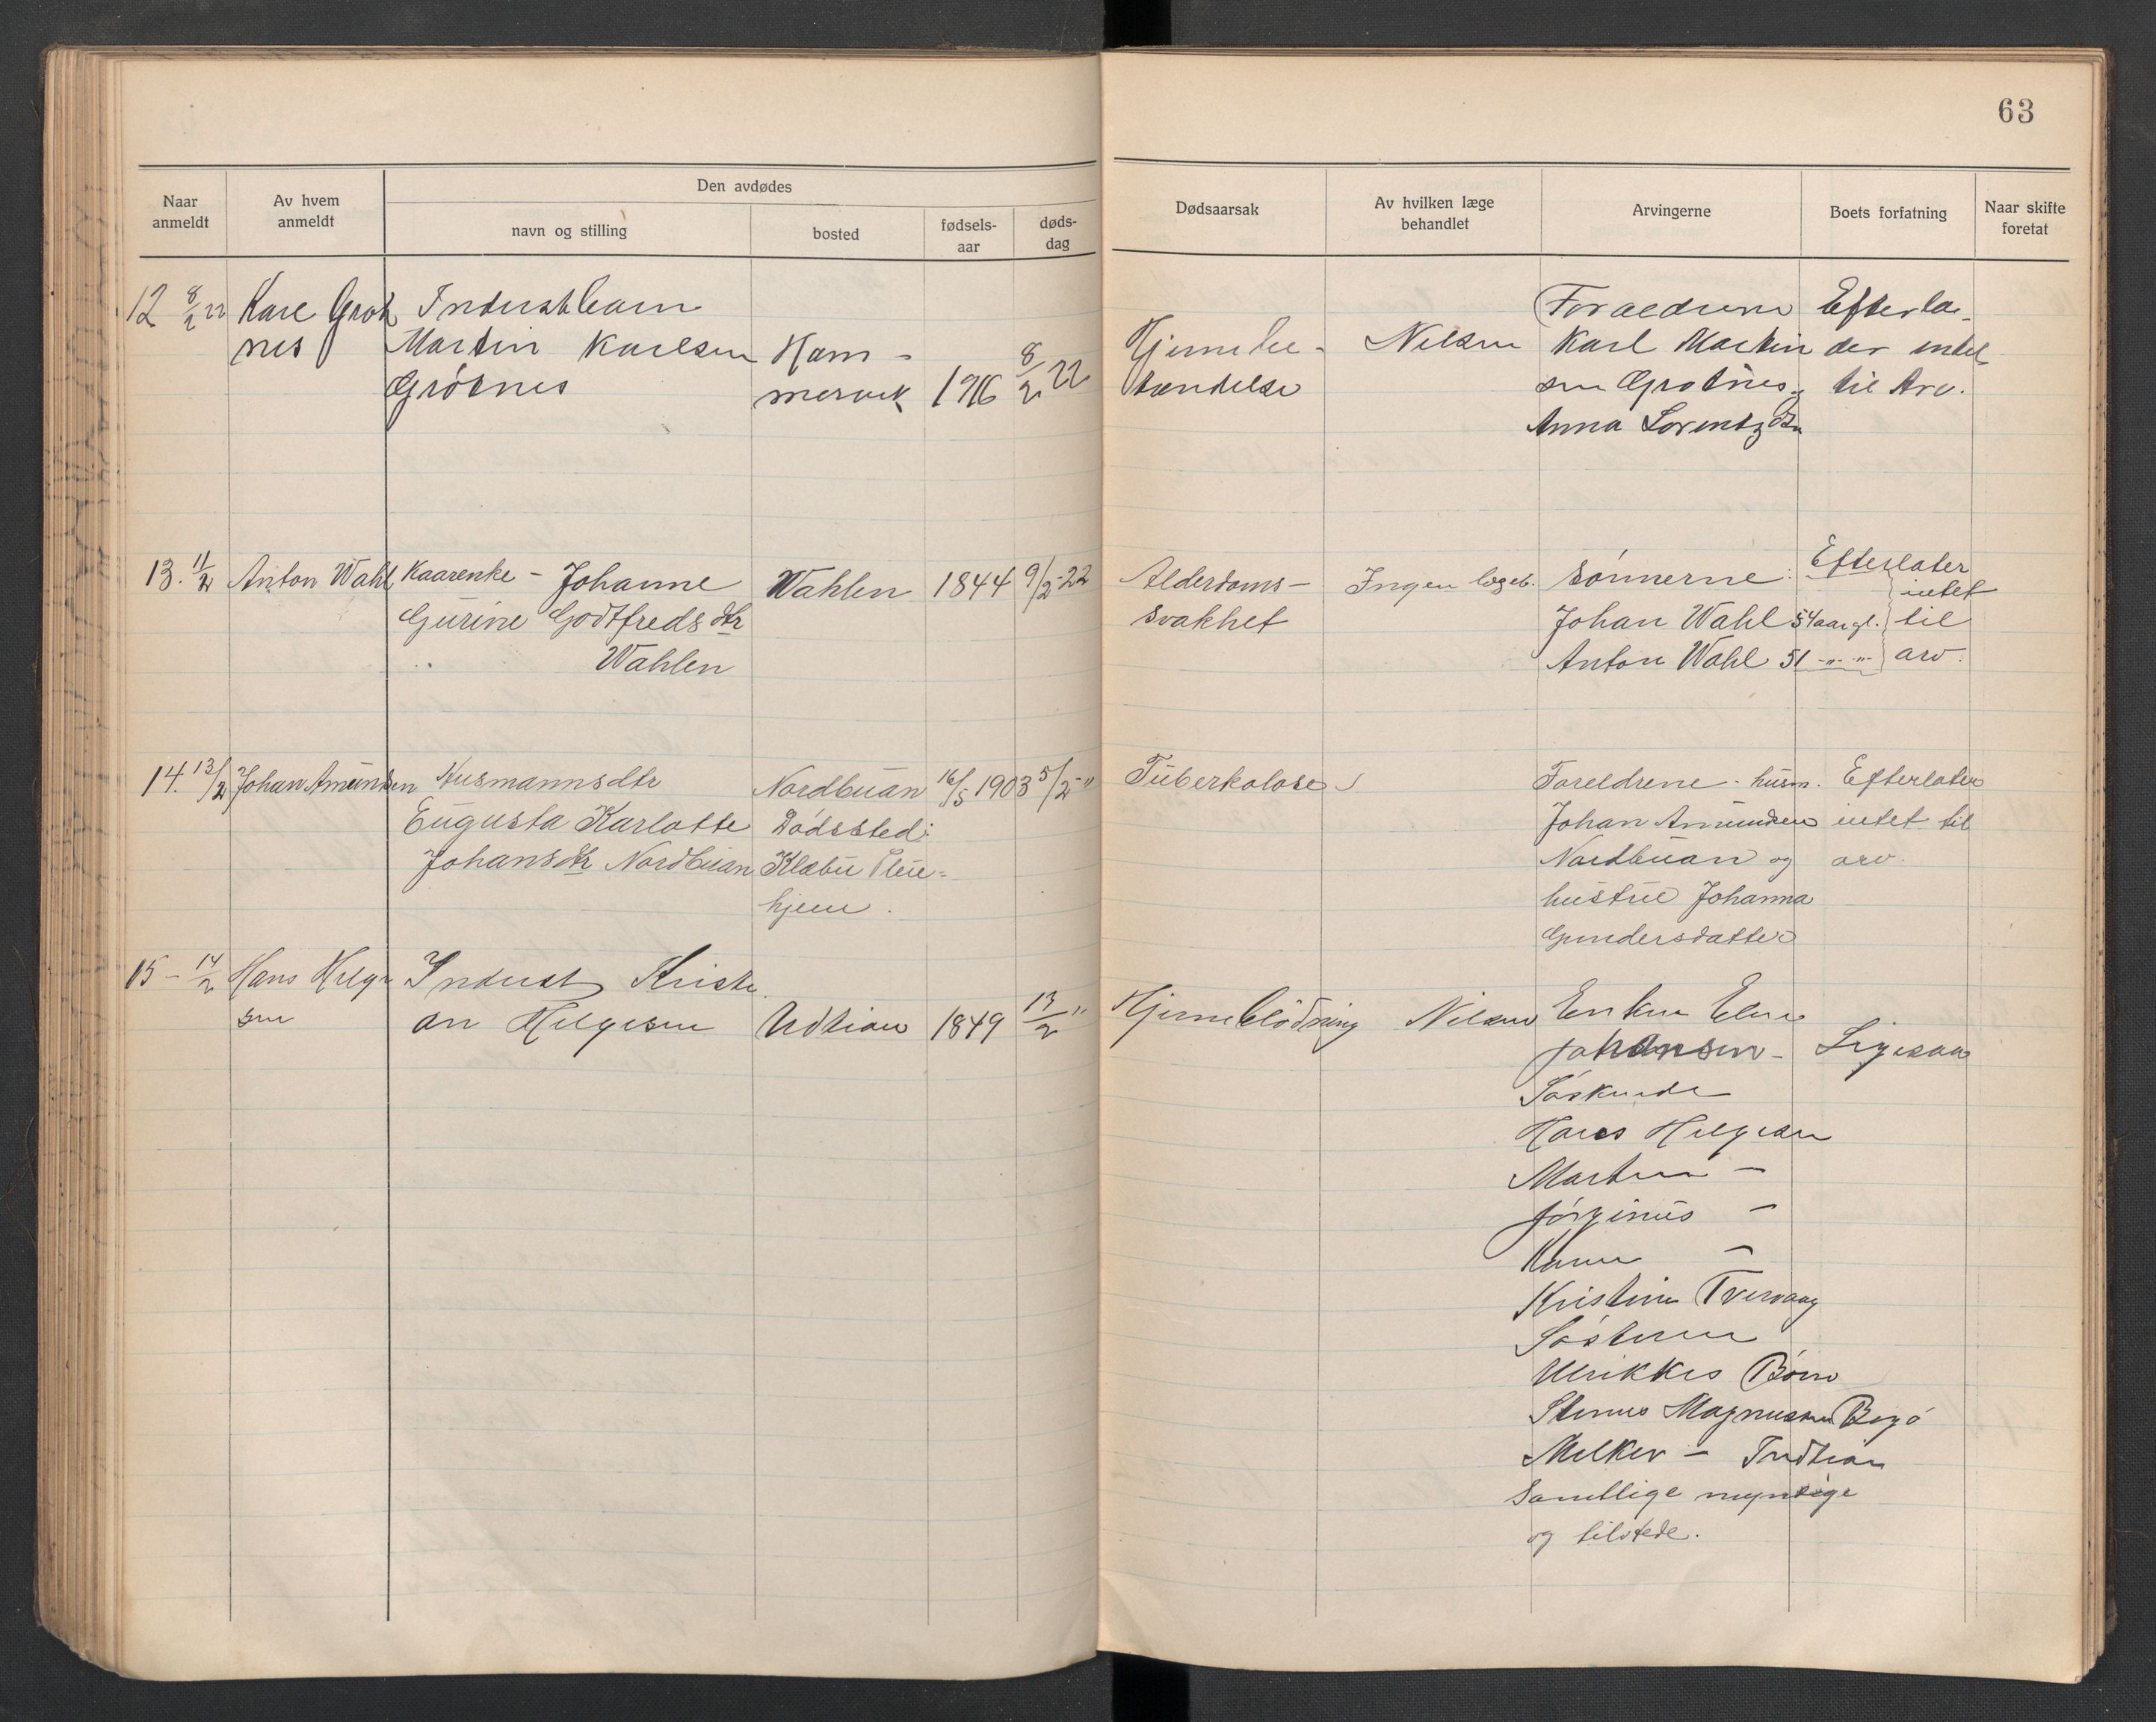 63
Naar anmeldt
Av hvem anmeldt
Den avdødes
navn og stilling
bosted
fødsels-aar
døds-dag
Dødsaarsak
Av hvilken læge behandlet
Arvingerne
Boets forfatning
Naar skifte foretat
12 8/2 22 Karl Grøt
nes
Inderstbarn
Martin Karlsen
Grøtnes
Ham-
mervik
1916
8/2 22
Hjernebe-
tændelse
Nilsen
Foraeldrene
Karl Martin
sen Grøtnes
Anna Lorentzdtr
Efterla-
der intet
til Arv.
13. 11/2 Anton Wahl
Kaarenke - Johanne
Gurine Godtfredsdtr
Wahlen
Wahlen
1844
9/2-22
Alderdoms-
svakhet
Ingen lægeb.
Sønnerne:
Johan Wahl 54 aar gl.
Anton Wahl 51 -"- -"-
Efterlater
intet
til
arv.
14. 13/2 Johan Amundsen
Husmannsdtr
Eugusta Karlotte
Johansdtr Nordbuan
Nordbuan
Dødssted:
Klæbu Pleie-
hjem.
16/5 1903
5/2-"
Tuberkolose
Foreldrene - husm.
Johan Amundsen
Nordbuan og
hustru Johanna
Gundersdatter
Efterlater
intet til
arv.
15 - 14/2 Hans Helge
sen
Inderst Kristi
an Helgesen
Udtian
1849
13/2 "
Hjerneblødning
Nilsen
Enken Elen
Johansen -
Søskende
Hans Helgesen
Martin -
Jørginus -
-
Kristine Tvervaag
Søsteren
Ulrikkes Børn
Magnussen
Melker -
Samtlige myndige
og tilstede.